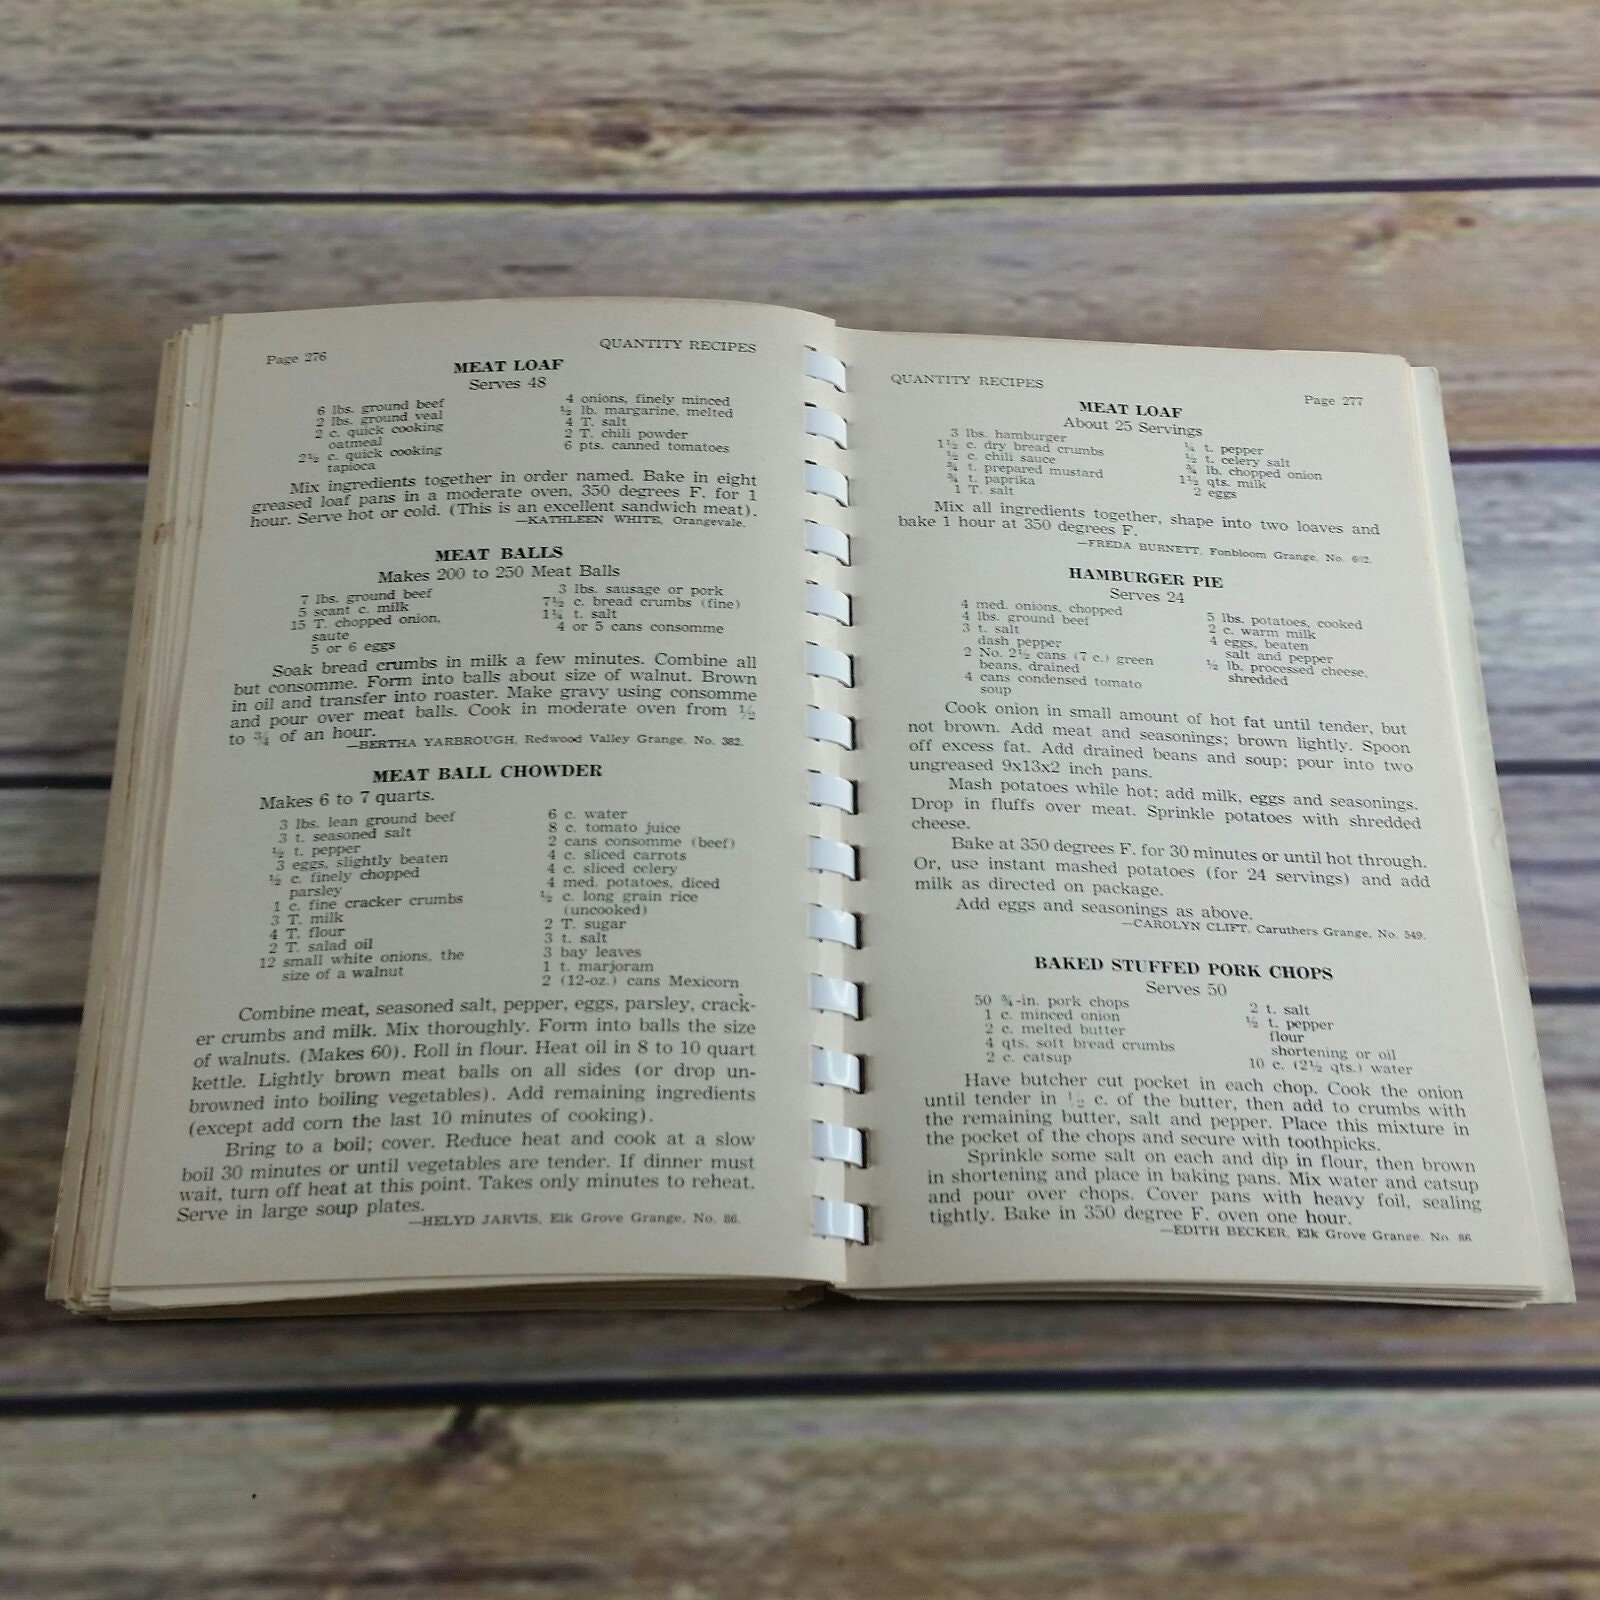 Page 276
QUANTITY RECIPES
MEAT LOAF
Serves 48
6 lbs. ground beef
2 lbs. ground veal
2 c. quick cooking
oatmeal
2½ c. quick cooking
tapioca
4 onions, finely minced
½ lb. margarine, melted
4 T. salt
2 T. chili powder
6 pts. canned tomatoes
Mix ingredients together in order named. Bake in eight
greased loaf pans in a moderate oven, 350 degrees F. for 1
hour. Serve hot or cold. (This is an excellent sandwich meat).
—KATHLEEN WHITE, Orangevale.
MEAT BALLS
Makes 200 to 250 Meat Balls
7 lbs. ground beef
5 scant c. milk
15 T. chopped onion,
saute
5 or 6 eggs
3 lbs. sausage or pork
7½ c. bread crumbs (fine)
1¼ t. salt
4 or 5 cans consomme
Soak bread crumbs in milk a few minutes. Combine all
but consomme. Form into balls about size of walnut. Brown
in oil and transfer into roaster. Make gravy using consomme
and pour over meat balls. Cook in moderate oven from ½
to ¾ of an hour.
—BERTHA YARBROUGH, Redwood Valley Grange, No. 382.
MEAT BALL CHOWDER
Makes 6 to 7 quarts.
3 lbs. lean ground beef
3 t. seasoned salt
½ t. pepper
3 eggs, slightly beaten
½ c. finely chopped
parsley
1 c. fine cracker crumbs
3 T. milk
4 T. flour
2 T. salad oil
12 small white onions, the
size of a walnut
6 c. water
8 c. tomato juice
2 cans consomme (beef)
4 c. sliced carrots
4 c. sliced celery
4 med. potatoes, diced
½ c. long grain rice
(uncooked)
2 T. sugar
3 t. salt
3 bay leaves
1 t. marjoram
2 (12-oz.) cans Mexicorn
Combine meat, seasoned salt, pepper, eggs, parsley, crack-
er crumbs and milk. Mix thoroughly. Form into balls the size
of walnuts. (Makes 60). Roll in flour. Heat oil in 8 to 10 quart
kettle. Lightly brown meat balls on all sides (or drop un-
browned into boiling vegetables). Add remaining ingredients
(except add corn the last 10 minutes of cooking).
Bring to a boil; cover. Reduce heat and cook at a slow
boil 30 minutes or until vegetables are tender. If dinner must
wait, turn off heat at this point. Takes only minutes to reheat.
Serve in large soup plates.
—HELYD JARVIS, Elk Grove Grange, No. 86.
QUANTITY RECIPES
Page 277
MEAT LOAF
About 25 Servings
3 lbs. hamburger
1½ c. dry bread crumbs
½ c. chili sauce
¾ t. prepared mustard
¾ t. paprika
1 T. salt
¼ t. pepper
½ t. celery salt
¾ lb. chopped onion
1½ qts. milk
2 eggs
Mix all ingredients together, shape into two loaves and
bake 1 hour at 350 degrees F.
—FREDA BURNETT, Fonbloom Grange, No.
HAMBURGER PIE
Serves 24
4 med. onions, chopped
4 lbs. ground beef
3 t. salt
dash pepper
2 No. 2½ cans (7 c.) green
beans, drained
4 cans condensed tomato
soup
5 lbs. potatoes, cooked
2 c. warm milk
4 eggs, beaten
salt and pepper
½ lb. processed cheese,
shredded
Cook onion in small amount of hot fat until tender, but
not brown. Add meat and seasonings; brown lightly. Spoon
off excess fat. Add drained beans and soup; pour into two
ungreased 9x13x2 inch pans.
Mash potatoes while hot; add milk, eggs and seasonings.
Drop in fluffs over meat. Sprinkle potatoes with shredded
cheese.
Bake at 350 degrees F. for 30 minutes or until hot through.
Or, use instant mashed potatoes (for 24 servings) and add
milk as directed on package.
Add eggs and seasonings as above.
—CAROLYN CLIFT, Caruthers Grange, No. 549.
BAKED STUFFED PORK CHOPS
Serves 50
50 ¾-in. pork chops
1 c. minced onion
2 c. melted butter
4 qts. soft bread crumbs
2 c. catsup
2 t. salt
½ t. pepper
flour
shortening or oil
10 c. (2½ qts.) water
Have butcher cut pocket in each chop. Cook the onion
until tender in ½ c. of the butter, then add to crumbs with
the remaining butter, salt and pepper. Place this mixture in
the pocket of the chops and secure with toothpicks.
Sprinkle some salt on each and dip in flour, then brown
in shortening and place in baking pans. Mix water and catsup
and pour over chops. Cover pans with heavy foil, sealing
tightly. Bake in 350 degree F. oven one hour.
—EDITH BECKER, Elk Grove Grange, No. 86